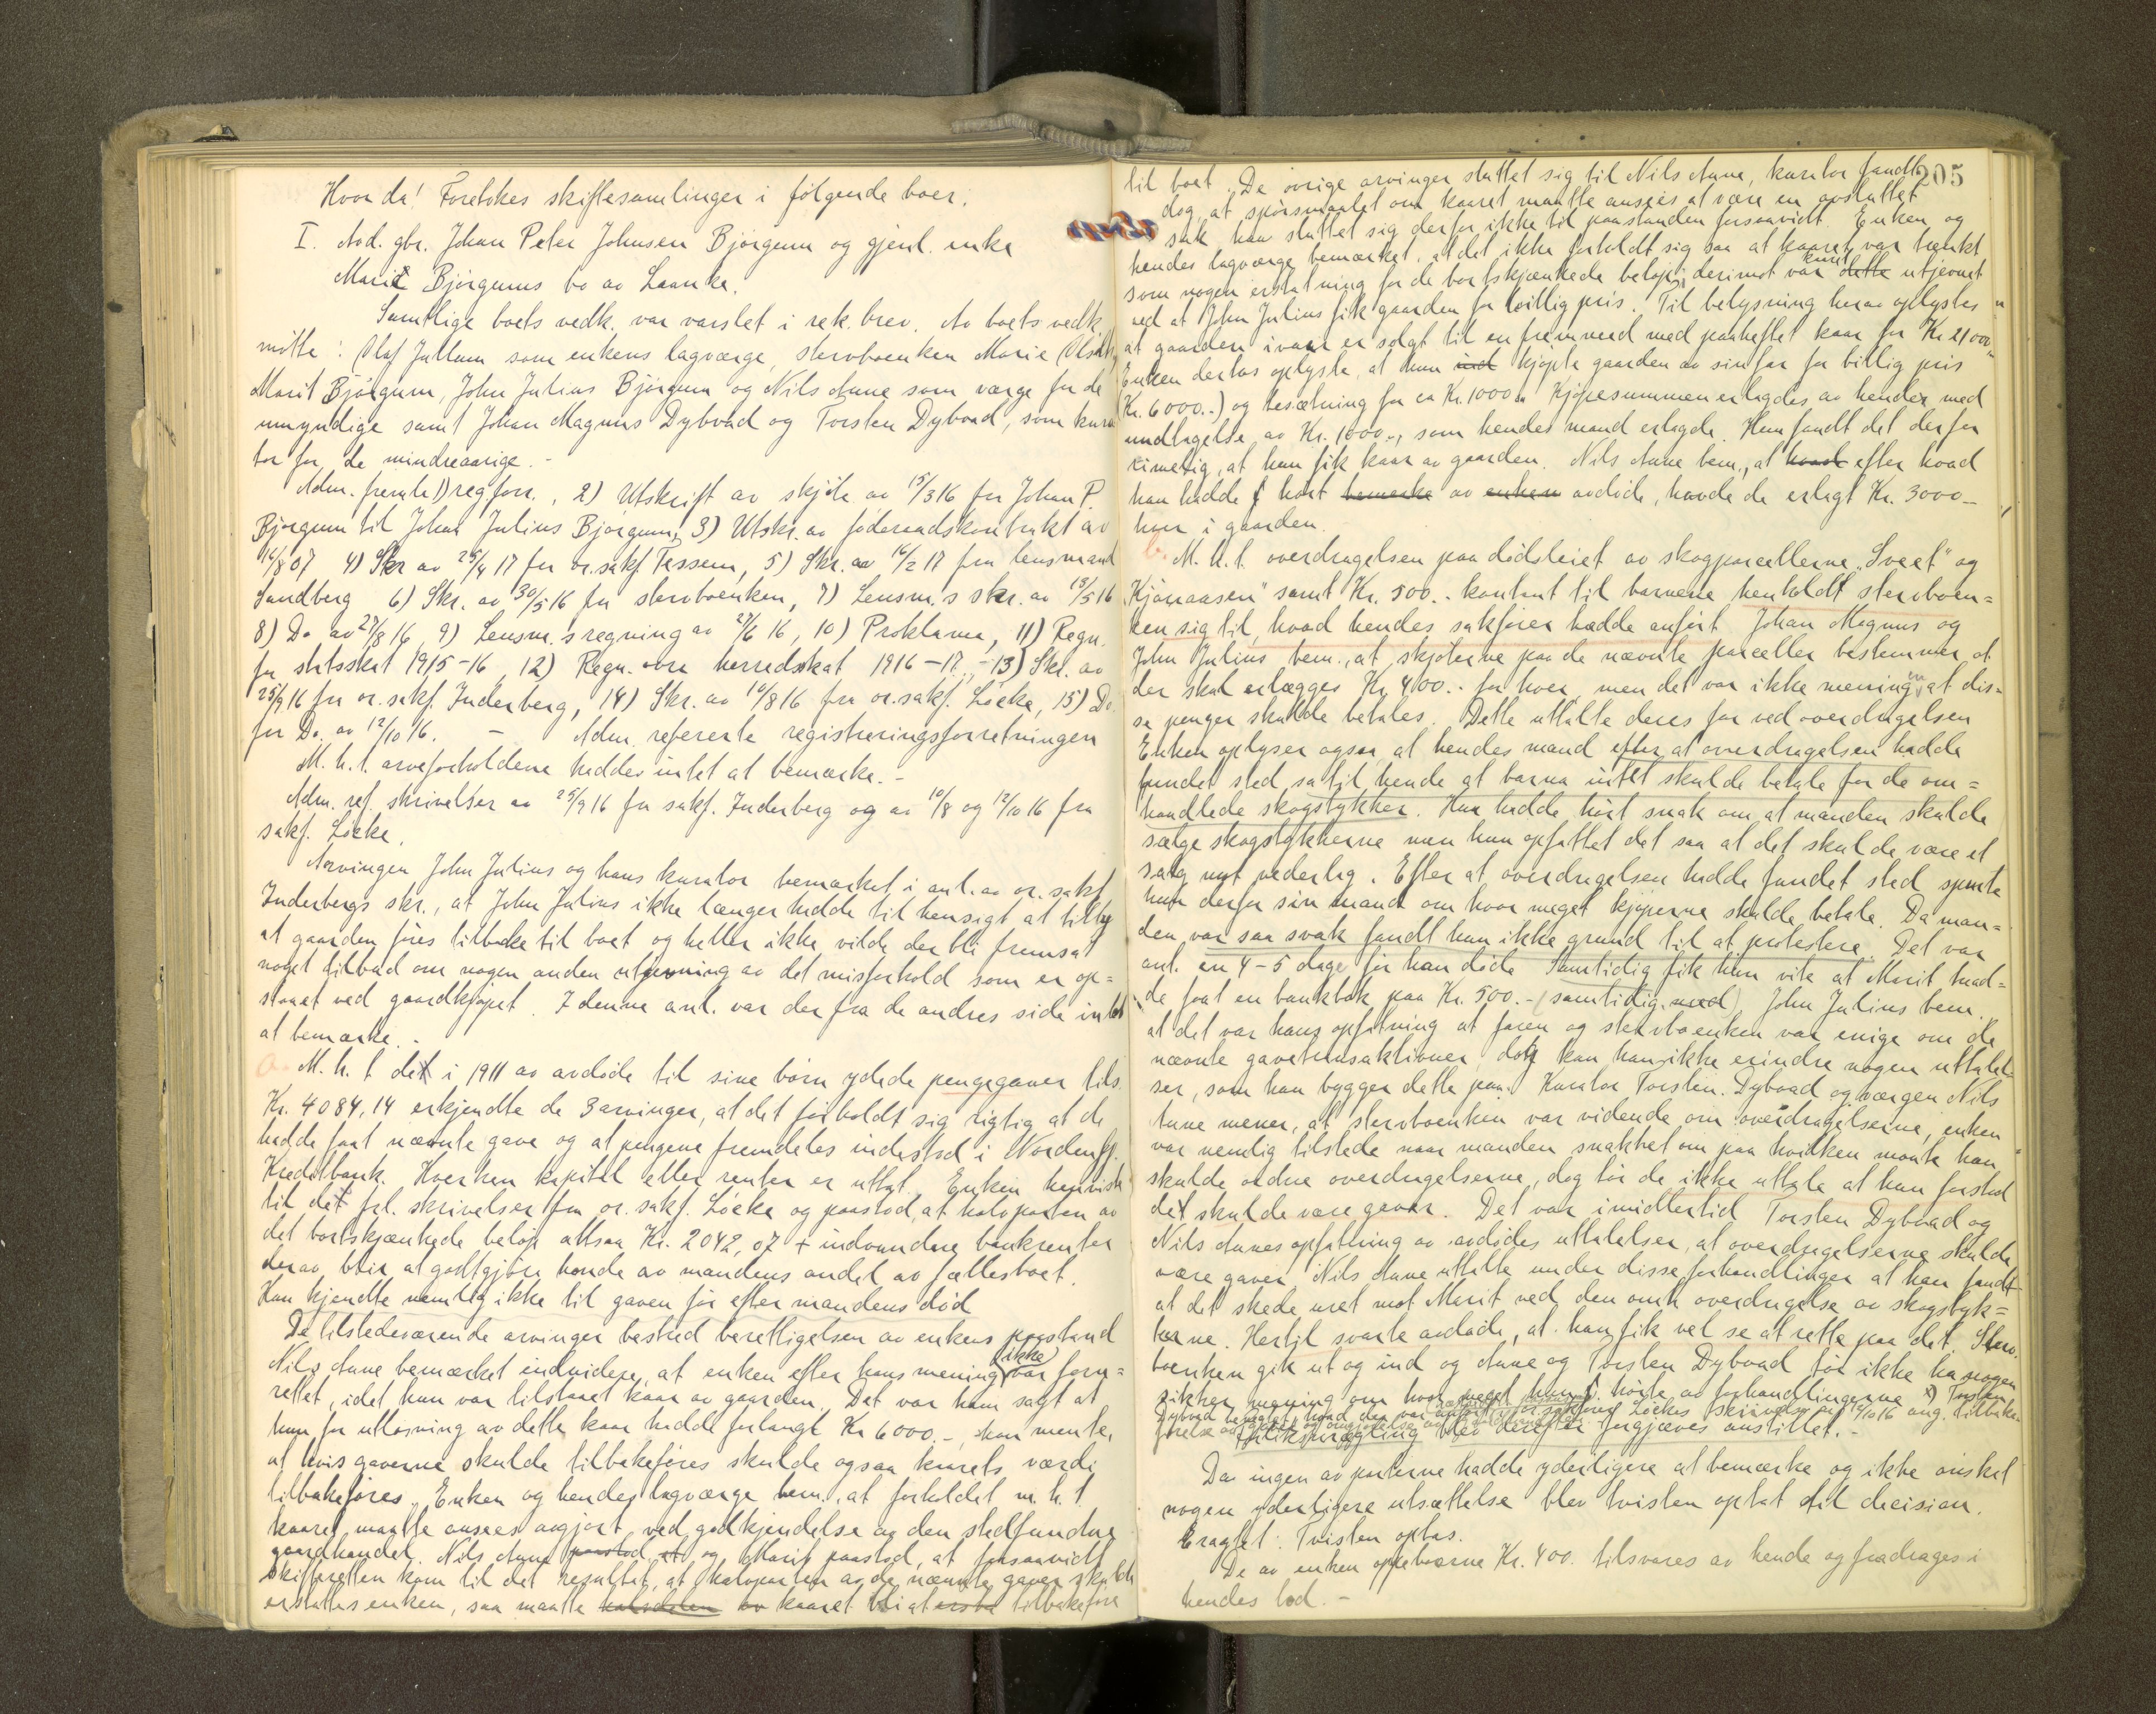 Hvor da! Foretokes skiftesamlinger i følgende boer:
I. Avd. gbr. Johan Peter Johnsen Bjørgum og gjenl. enke
Marie Bjørgums bo av Laanke.
Samtlige boets vedk. var varslet i rek. brev. Av boets vedk.
møtte: Olaf Jullum som enkens lagværge, stervboenken Marie Olsdtr,
Marit Bjørgum, John Julius Bjørgum og Nils Aune som værge for de
umyndige samt Johan Magnus Dybvad og Torsten Dybvad, som kura
tor for de mindreaarige.-
Adm. fremla 1) reg.forr., 2) Utskrift av skjøte av 15/3 16 fra Johan P.
Bjørgum til Johan Julius Bjørgum, 3) Utskr. av føderaadskontrakt av
16/8 07 4) Skr av 25/4 17 fra or.sakf. Tessem, 5) Skr. av 16/2 17 fra lensmand
Sandberg 6) Skr. av 30/5 16 fra stervboenken, 7) Lensm.s skr. av 15/5 16
8) Do av 27/8 16, 9) Lensm.s regning av 27/6 16, 10) Proklama, 11) Regn.
for statsskat 1915-16, 12) Regn. over herredskat 1916-17, -13) Skr. av
25/9 16 fra or. sakf. Inderberg, 14) Skr. av 10/8 16 fra or.sakf. Løcke, 15) Do
fra Do. av 12/10 16. - Adm. refererte registreringsforretningen
M. h. t. arveforholdene haddes intet at bemærke.-
Adm. ref. skrivelser av 25/9 16 fra sakf. Inderberg og av 10/8 og 12/10 16 fra
sakf. Løcke.
Arvingen John Julius og hans kurator bemærket i anl. av or. sakf.
Inderbergs skr., at John Julius ikke længer hadde til hensigt at tilby
at gaarden føres tilbake til boet og heller ikke vilde der bli fremsat
noget tilbud om nogen anden utjevning av det misforhold som er op=
staaet ved gaardkjøpet. I denne anl. var der fra de andres side intet
at bemærke.-
a. M. h. t de i 1911 av avdøde til sine børn ydede pengegaver tils.
Kr. 4084,14 erkjendte de 3 arvinger, at det forholdt sig rigtig at de
hadde faat nævnte gave og at pengene fremdeles indestod i Nordenfj.
Kreditbank. Hverken kapital eller renter er uttat. Enken henviste
til de frl. skrivelser fra or. sakf. Løcke og paastod, at halvparten av
det bortskjænkede beløp altsaa Kr. 2042,07 + indvundne bankrenter
derav blir at godtgjøre hende av mandens andel av fællesboet.
Hun kjendte nemlig ikke til gaven før efter mandens død
De tilstedeværende arvinger bestred berettigelsen av enkens paastand
Nils Aune bemærket endvidere, at enken efter hans mening ikke var forn=
rettet, idet hun var tilstaaet kaar av gaarden. Det var ham sagt at
hun for utløsning av dette kaar hadde forlangt Kr 6000.-, han mente,
at hvis gaverne skulde tilbakeføres skulde ogsaa kaarets værdi
tilbakeføres. Enken og hendes lagværge bem., at forholdet m. h. t.
kaaret maatte ansees avgjort ved godkjendelse av den stedfundne
gaardhandel. Nils Aune paastod at og Marit paastod, at forsaavidt
skifteretten kom til det resultat, at halvparten av de nævnte gaver skulde
erstattes enken, saa maatte halvdelen av kaaret bli at ersta tilbakeføre
205
til boet. De øvrige arvinger sluttet sig til Nils Aune, kurator fandt
dog, at spørsmaalet om kaaret maatte ansees at være en avsluttet
sak han sluttet sig derfor ikke til paastanden forsaavidt Enken og
hendes lagværge bemærket, at det ikke forholdt sig saa at kaaret var tænkt
som nogen erstatning for de bortskjænkede beløp, derimot var kaaret dette utjevnet
ved at John Julius fik gaarden for billig pris. Til belysning herav oplystes
at gaarden ivaar er solgt til en fremmed med paaheftet kaar for Kr 21000.-
Enken dertos oplyste, at hun ind kjøpte gaarden av sin far for billig pris
(Kr. 6000..) og besætning for ca Kr. 1000.- Kjøpesummen erlagdes av hender med
undtagelse av Kr. 1000.-, som hendes mand erlagde. Hun fandt det derfor
rimelig, at hun fik kaar av gaarden. Nils Aune bem., at hvad efter hvad
han hadde hørt bemærke av enken avdøde, havde de erlagt Kr. 3000.-
hver i gaarden.
b. M. h. t. overdragelsen paa dødsleiet av skogparcellerne "Sveet" og
"Kjønaasen" samt Kr. 500.- kontant til barnene henholdt stervboen=
ken sig til, hvad hendes sakfører hadde anført Johan Magnus og
John Julius bem., at skjøterne paa de nævnte parceller bestemmer at
der skal erlægges Kr 400.- for hver, men det var ikke meningen at dis=
se penger skulde betales. Dette uttalte deres far ved overdragelsen
Enken oplyser ogsaa, at hendes mand efter at overdragelsen hadde
fundet sted sa til hende at barna intet skulde betale for de om=
handlede skogstykker. Hun hadde hørt snak om at manden skulde
sælge skogstykkerne men hun opfattet det saa at det skulde være et
salg mot vederlag. Efter at overdragelsen hadde fundet sted spurte
hun derfor sin mand om hvor meget kjøperne skulde betale. Da man=
den var saa svak fandt hun ikke grund til at protestere. Det var
ant. en 4-5 dage før han døde Samtidig fik hun vite at Marit had=
de faat en bankbok paa Kr. 500.- (samtidig med) John Julius bem.
at det var hans opfatning at faren og stervboenken var enige om de
nævnte gavetransaktioner, dog kan han ikke erindre nogen uttalel=
ser, som han bygger dette paa. Kurator Torsten Dybvad og værgen Nils
Aune mener, at stervboenken var vidende om overdragelserne, enken
var nemlig tilstede naar manden snakket om paa hvilken maate han
skulde ordne overdragelserne, dog tør de ikke uttale at hun forstod
det skulde være gaver. Det var imidlertid Torsten Dybvad og
Nils Aunes opfatning av avdødes uttalelser, at overdragelserne skulde
være gaver Nils Aune uttalte under disse forhandlinger at han fandt
at det skede uret mot Marit ved den omh. overdragelse av skogstyk=
kerne. Hertil svarte avdøde, at han fik vel se at rette paa det. Sterv.
boenken gik ut og ind og Aune og Torsten Dybvad tør ikke ha nogen
sikker mening om hvor meget hun hørte av forhandlingerne x) Torsten
Dybvad benegtet, hvad der var anført i or.sakfører Løckes skrivelse av 12/10 16 ang. tilbake
førelse Forliksmægling blev derefter forgjæves anstillet.-
Da ingen av parterne hadde yderligere at bemærke og ikke ønsket
nogen yderligere utsættelse blev tvisten optat til decision.
Eragtet: Tvisten optas.
De av enken oppebaarne Kr. 400. tilsvares av hende og fradrages i
hendes lod.-